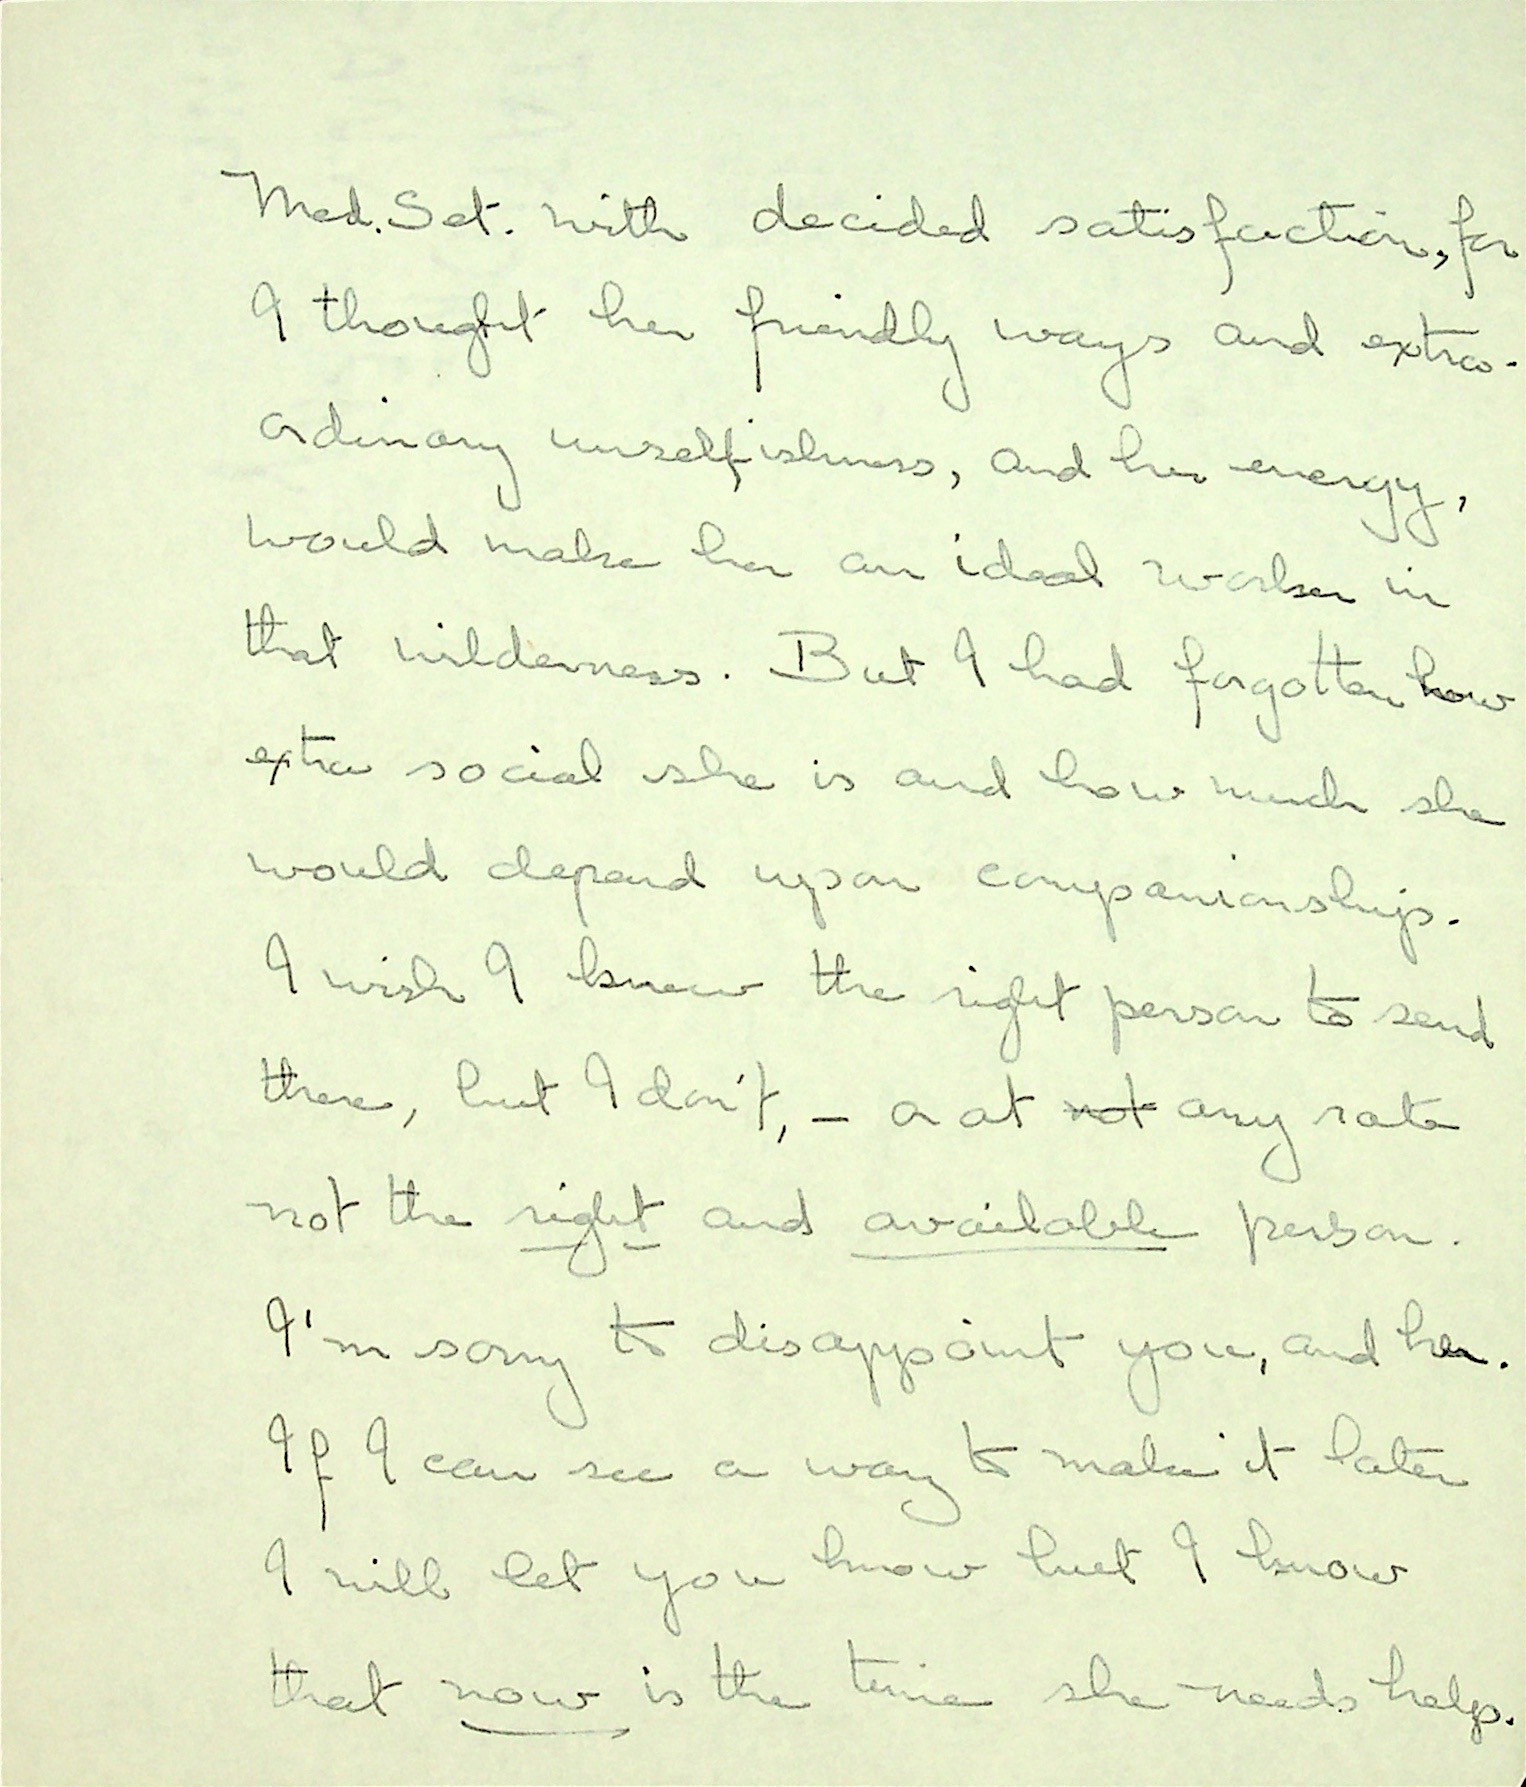 Med. Set. with decided satisfaction, for
I thought her friendly ways and extra-
ordinary unselfishness, and her energy,
would make her an ideal worker in
that wilderness. But I had forgotten how
extra social she is and how much she
would depend upon companionship.
I wish I knew the right person to send
there, but I don't, — or at not any rate
not the right and available person.
I'm sorry to disappoint you, and her.
If I can see a way to make it later
I will let you know but I know
that now is the time she needs help.